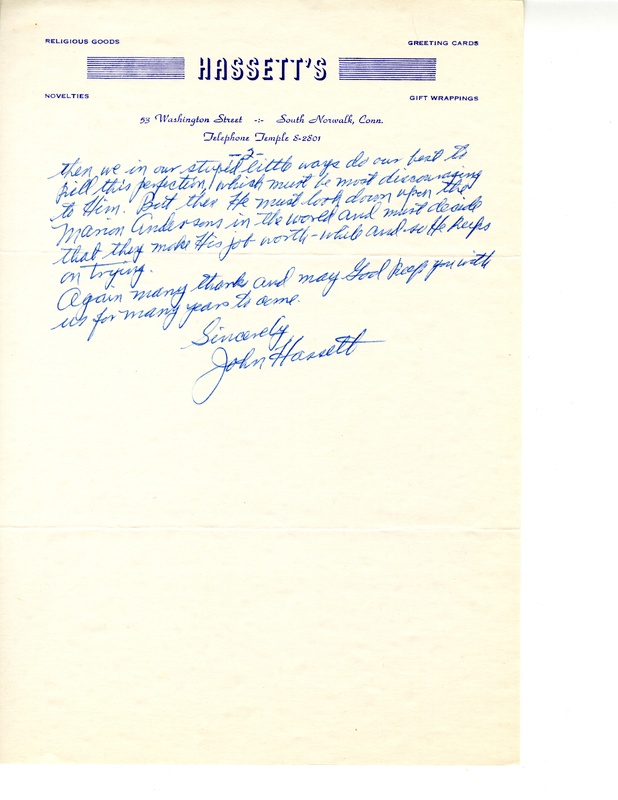 RELIGIOUS GOODS
GREETING CARDS
HASSETT'S
NOVELTIES
GIFT WRAPPINGS
53 Washington Street -:- South Norwalk, Conn.
Telephone Temple 8-2801
-2-
then we in our stupid little ways do our best to
kill this perfection, which must be most discouraging
to Him. But then He must look down upon the
Marion Andersons in the world and must decide
that they make His job worth-while and so He keeps
on trying.
Again many thanks and may God keep you with
us for many years to come.
Sincerely,
John Hassett